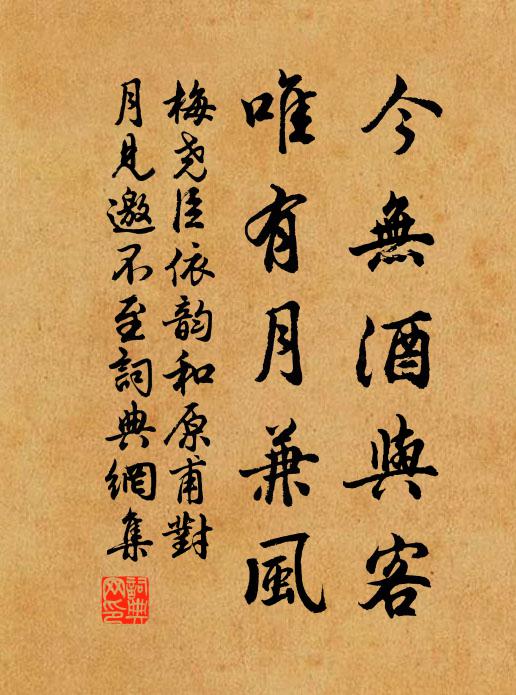 今無酒與客
唯有月兼風
梅尧臣依韵和原甫對
月見邀不至詞典網集
詞典網印